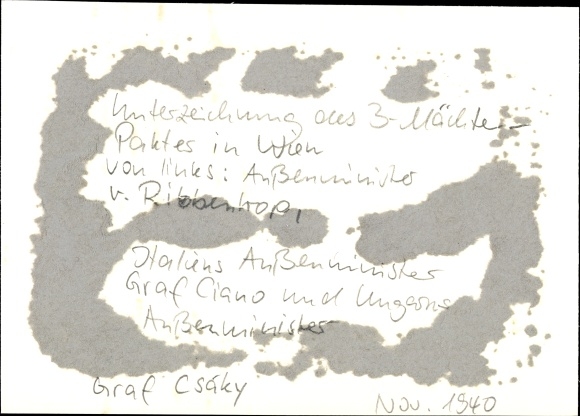 Unterzeichnung des 3-Mächte-
Paktes in Wien
von links: Außenminister
v. Ribbentrop,
Italiens Außenminister
Graf Ciano und Ungarns
Außenminister
Graf Csáky
Nov. 1940